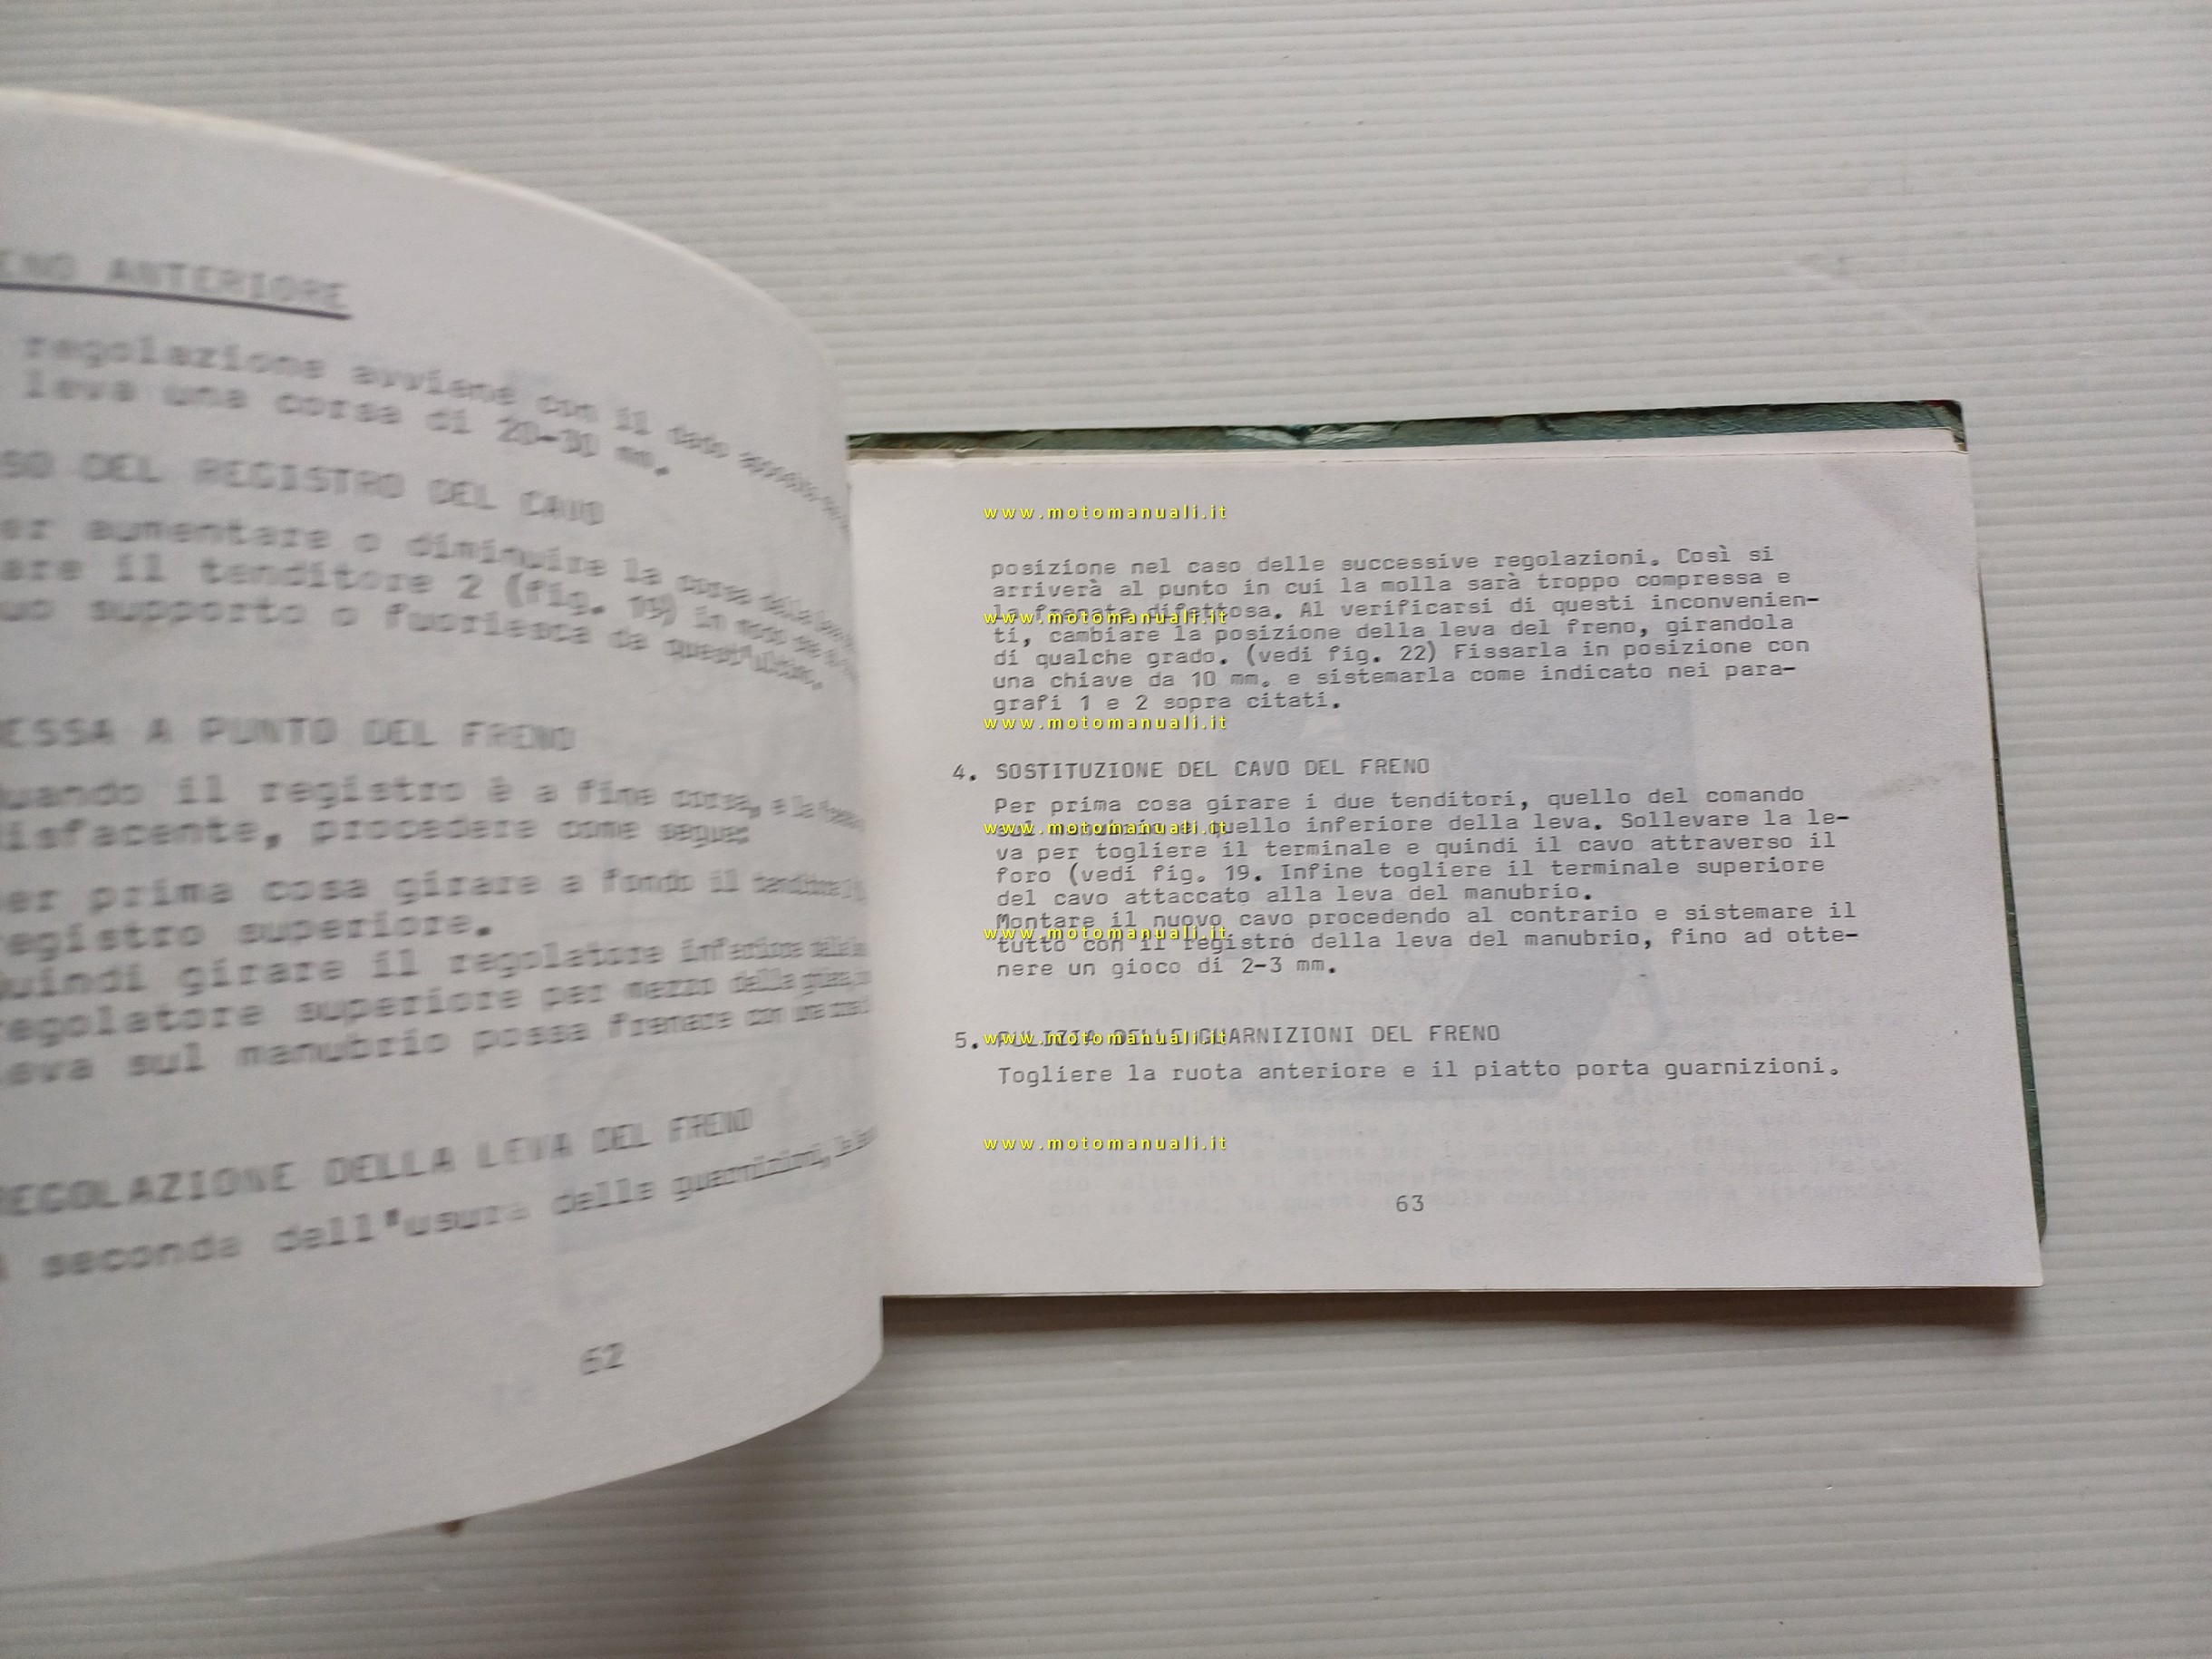 ENO ANTERIORE
regolazione avviene con il dado
leva una corsa di 20-30 mm.
SO DEL REGISTRO DEL CAVO
er aumentare o diminuire la corsa della
are il tenditore 2 (fig. 19) in modo
uo supporto o fuoriesca da quest'ultimo.
ESSA A PUNTO DEL FRENO
uando il registro è a fine corsa, e la
isfacente, procedere come segue:
er prima cosa girare a fondo il tenditore
egistro superiore.
uindi girare il regolatore inferiore
egolatore superiore per mezzo della
eva sul manubrio possa frenare con una
REGOLAZIONE DELLA LEVA DEL FRENO
A seconda dell'usura delle guarnizini, la
62
www.motomanuali.it
posizione nel caso delle successive regolazioni. Così si
arriverà al punto in cui la molla sarà troppo compressa e
la frenata difettosa. Al verificarsi di questi inconvenien-
www.motomanuali.it
ti, cambiare la posizione della leva del freno, girandola
di qualche grado. (vedi fig. 22) Fissarla in posizione con
una chiave da 10 mm. e sistemarla come indicato nei para-
grafi 1 e 2 sopra citati.
www.motomanuali.it
4. SOSTITUZIONE DEL CAVO DEL FRENO
Per prima cosa girare i due tenditori, quello del comando
sul manubrio e quello inferiore della leva. Sollevare la le-
www.motomanuali.it
va per togliere il terminale e quindi il cavo attraverso il
foro (vedi fig. 19. Infine togliere il terminale superiore
del cavo attaccato alla leva del manubrio.
Montare il nuovo cavo procedendo al contrario e sistemare il
www.motomanuali.it
tutto con il registro della leva del manubrio, fino ad otte-
nere un gioco di 2-3 mm.
5. PULIZIA DELLE GUARNIZIONI DEL FRENO
www.motomanuali.it
Togliere la ruota anteriore e il piatto porta guarnizioni.
www.motomanuali.it
63